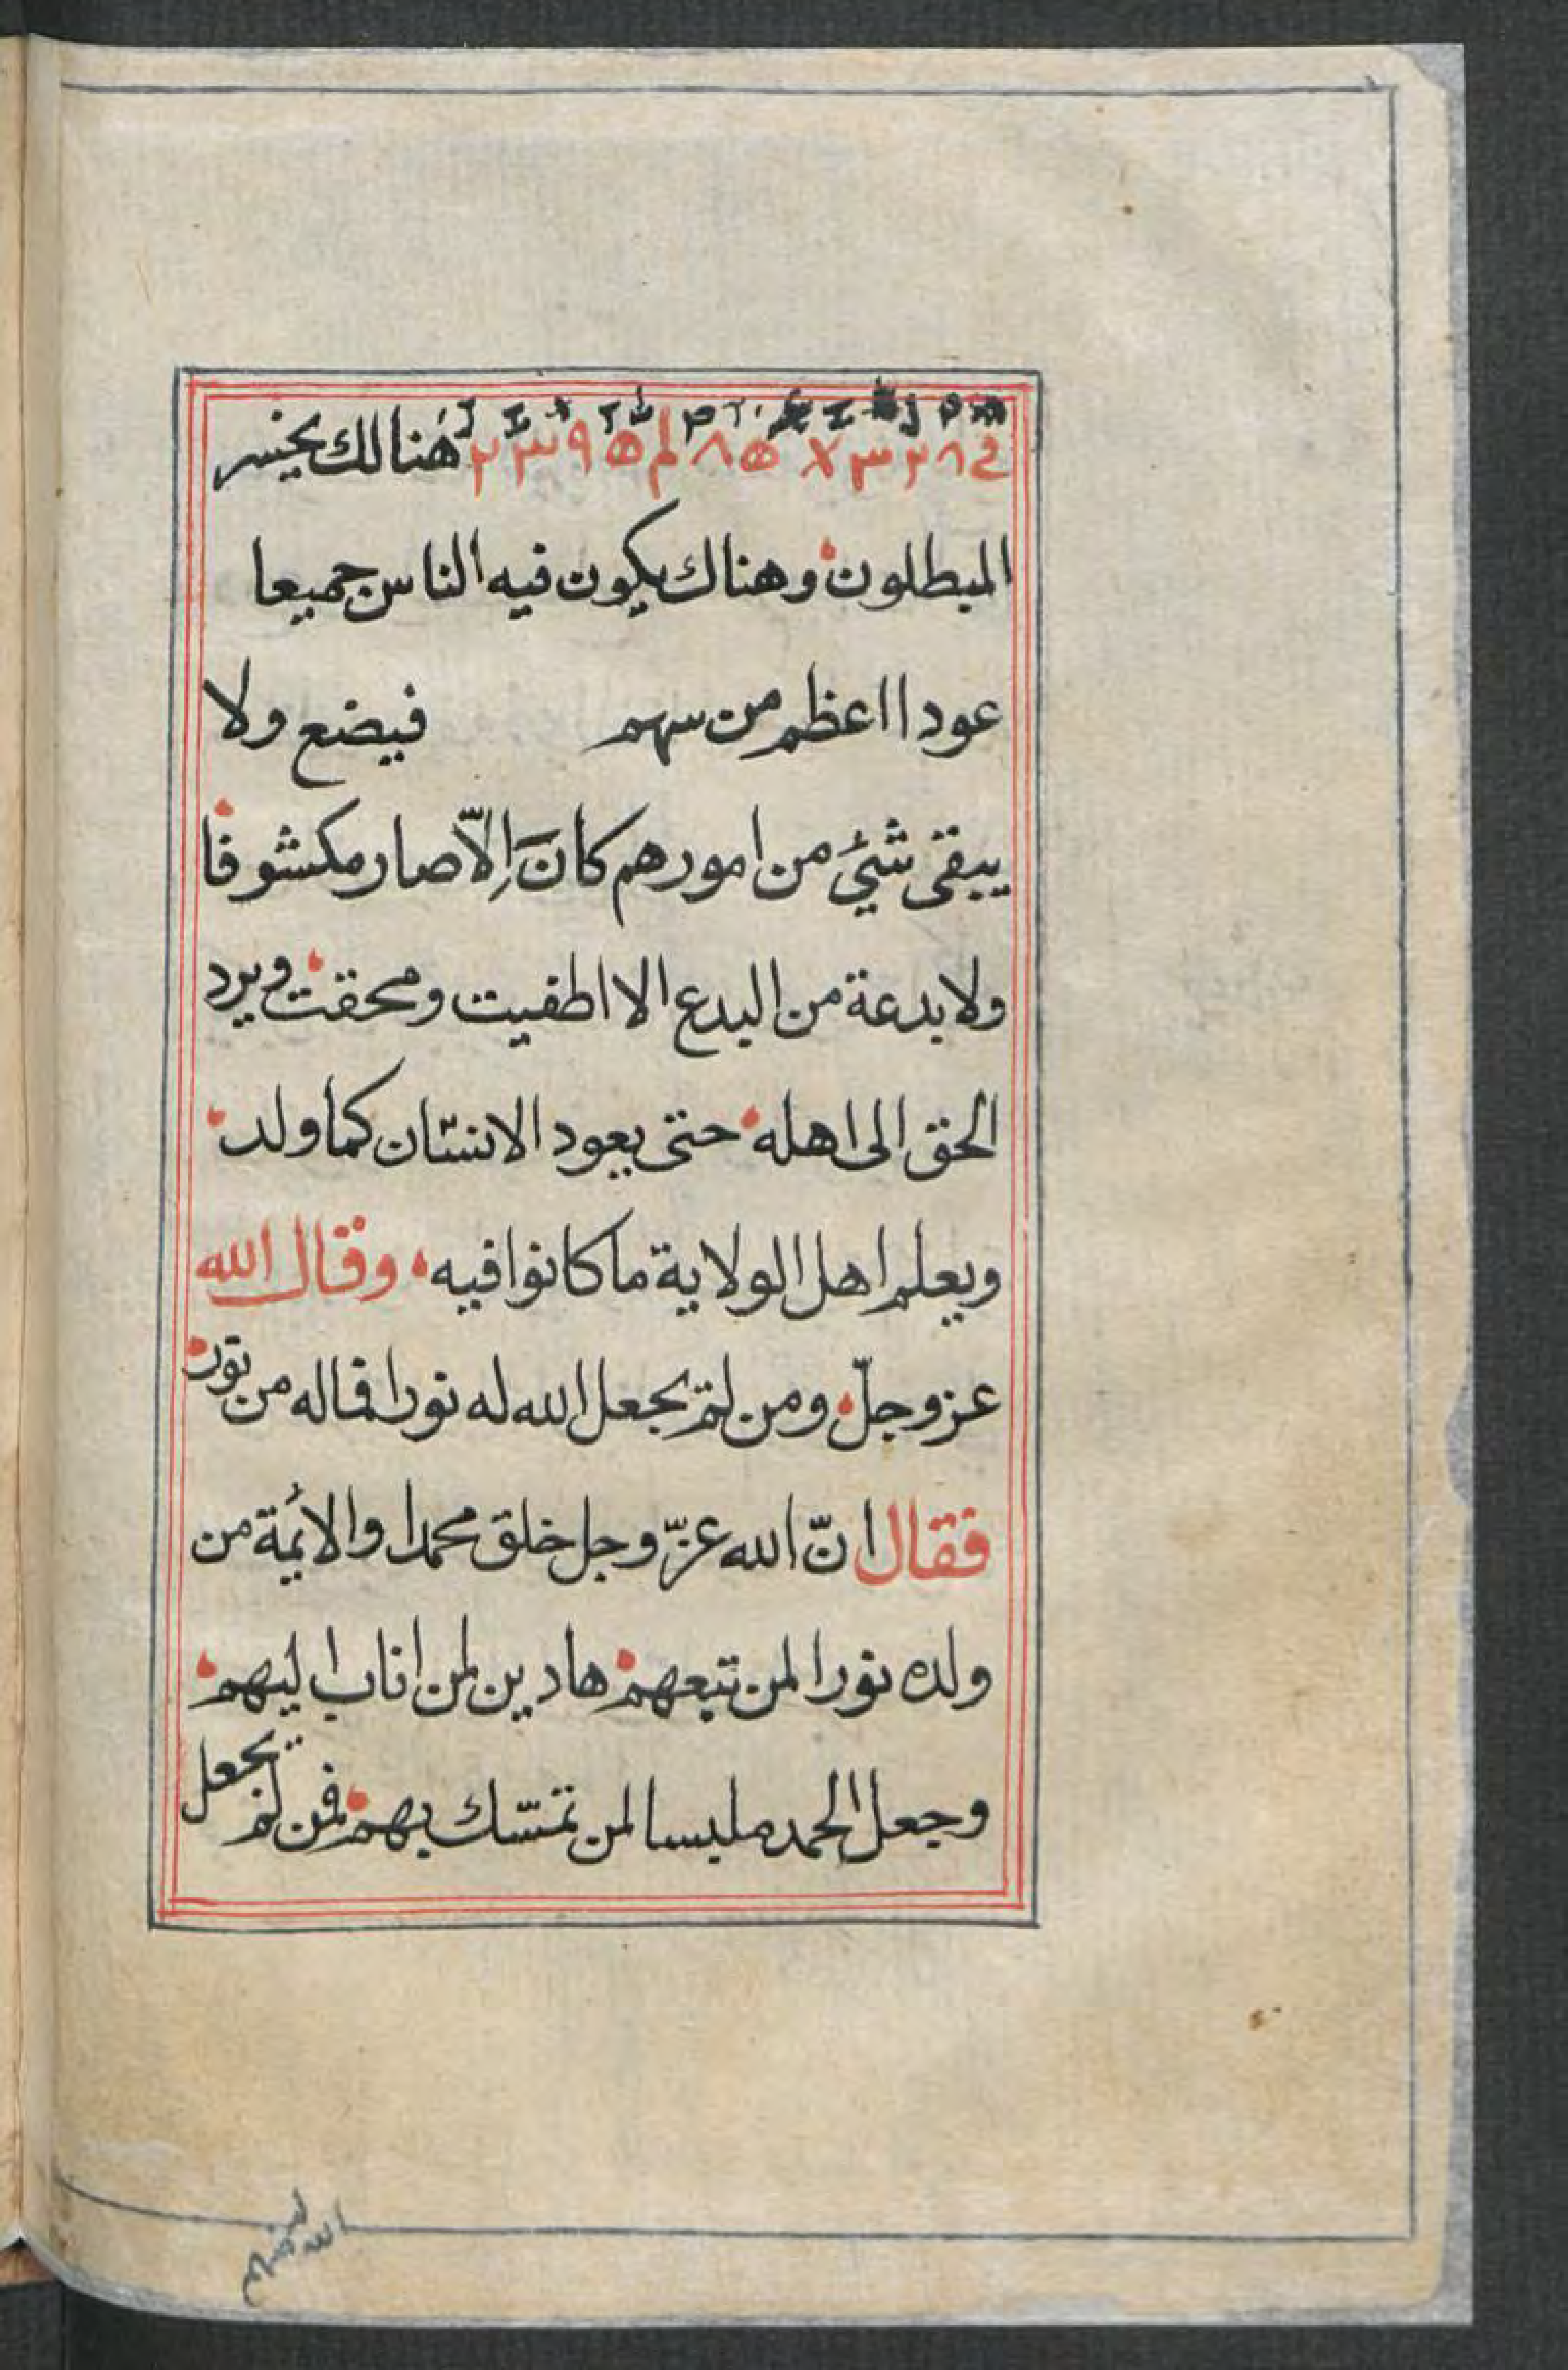 هنالك يخسر
المبطلون وهناك يكون فيه الناس جميعا
عودا اعظم من سهم فيضع ولا
يبقى شئي من امورهم كانَ اِلّا صار مكشوفا
ولا بدعة من البدع الا اطفيت ومحقت ويرد
الحق الى اهله حتى يعود الانسان كما ولد
ويعلم اهل الولاية ما كانوا فيه وقال الله
عز وجلّ ومن لم يجعل الله له نورا فماله من نور
فقال انّ الله عزّ وجل خلق محمدا والائمة من
ولده نورا لمن تبعهم هادين لمن اناب اليهم
وجعل الحمد ملبسا لمن تمسّك بهم فمن لم يجعل
الله